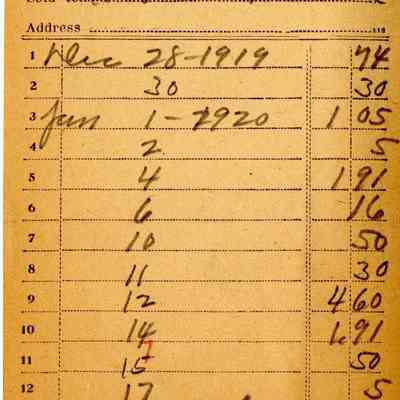 Address
1 Dec 28-1919 74
2 30 30
3 Jan 1-1920 1 05
4 2 5
5 4 1 91
6 6 16
7 10 50
8 11 30
9 12 4 60
10 14 1.91
11 15 50
12 17 5